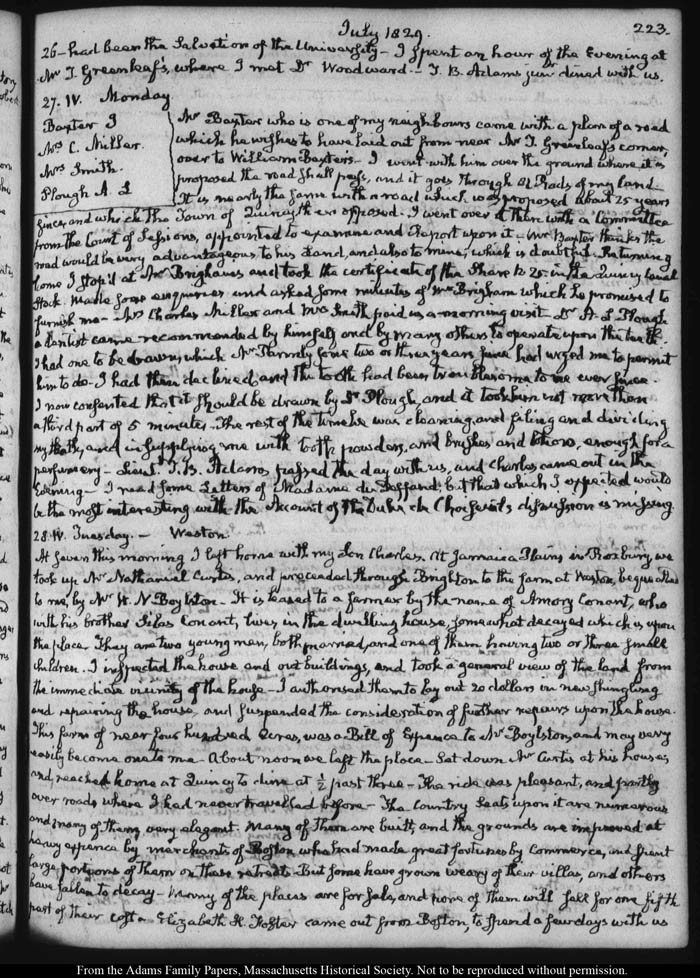 July 1829.
223.
26 — had been the Salvation of the University — I spent an hour of the Evening at
Mr T. Greenleaf's, where I met Dr Woodward. — T. B. Adams junr dined with us.
27. IV. Monday
Baxter J
Mrs C. Miller.
Mrs Smith.
Plough A. L
Mr Baxter who is one of my neighbours came with a plan of a road
which he wishes to have laid out from near Mr T. Greenleaf's corner,
over to William Baxter's — I went with him over the ground where it is
proposed the road shall pass, and it goes through 82 Rods of my land
It is nearly the same with a road which was proposed about 25 years
since, and which the Town of Quincy then opposed. I went over it then with a Committee
from the Court of Sessions, appointed to examine and Report upon it — Mr Baxter thinks the
road would be very advantageous to his Land, and also to mine, which is doubtful. Returning
home I stop'd at Mr Brigham's and took the certificate of the Share No 25 in the Quincy Canal
Stock. Made some enquiries and asked some minutes of Mr Brigham which he promised to
furnish me — Mrs Charles Miller and Mrs Smith paid us a morning visit Dr A. L Plough
a dentist came recommended by himself and by many others to operate upon the teeth.
I had one to be drawn, which Mr Parmly some two or three years since had urged me to permit
him to do. I had then declined, and the tooth had been troublesome to me ever since
I now consented that it should be drawn by Dr Plough, and it took him not more than
a third part of 5 minutes. The rest of the time he was cleaning and filing and dividing
my teeth, and in supplying me with tooth powders, and brushes and lotions, enough for a
perfumery — Lieut. T. B. Adams passed the day with us, and Charles came out in the
Evening — I read some Letters of Madame du Deffand; but that which I expected would
be the most interesting with the Account of the Duke de Choiseul's dismission is missing.
28. IV. Tuesday. — Weston
At seven this morning I left home with my Son Charles. At Jamaica Plains in Roxbury, we
took up Mr Nathaniel Curtis, and proceeded through Brighton to the farm at Weston, bequeathed
to me, by Mr W. N Boylston — It is leased to a farmer by the name of Amory Conant, who
with his brother Silas Conant, lives in the dwelling house, somewhat decayed which is upon
the place They are two young men, both married, and one of them having two or three small
children. I inspected the house and out buildings, and took a general view of the land from
the immediate vicinity of the house — I authorised them to lay out 20 dollars in new shingling
and repairing the house and suspended the consideration of further repairs upon the house.
This farm of near four hundred Acres, was a Bill of Expence to Mr Boylston, and may very
easily become one to me — About noon we left the place — Sat down Mr Curtis at his house,
and reached home at Quincy to dine at ½ past three — The ride was pleasant, and partly
over roads where I had never travelled before — The Country Seats upon it are numerous
and many of them very elegant. Many of them are built, and the grounds are improved at
heavy expence by merchants of Boston who had made great fortunes by Commerce, and spent
large portions of them on these retreats But some have grown weary of their villas, and others
have fallen to decay — Many of the places are for sale, and none of them will sell for one fifth
part of their cost — Elizabeth H. Foster came out from Boston, to spend a few days with us
From the Adams Family Papers, Massachusetts Historical Society. Not to be reproduced without permission.